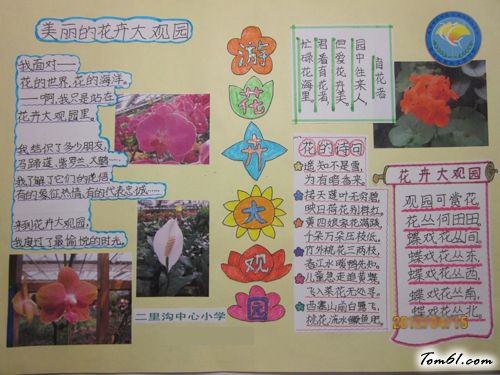 美丽的花卉大观园
我面对——
花的世界，花的海洋。
——啊，我只是站在
花卉大观园里。
我结识了多少朋友，
马蹄莲、紫罗兰、天鹅……
我了解了它们的花语，
有的象征热情，有的代表忠诚……
来到花卉大观园，
我度过了最愉悦的时光。
游
花
卉
大
观
园
二里沟中心小学
育花者
园中往来人，
但爱花卉美。
君看育花者，
忙碌花海里。
花的诗句
遥知不是雪，
为有暗香来。
接天莲叶无穷碧，
映日荷花别样红。
黄四娘家花满蹊，
千朵万朵压枝低。
竹外桃花三两枝，
春江水暖鸭先知。
儿童急走追黄蝶，
飞入菜花无处寻。
西塞山前白鹭飞，
桃花流水鳜鱼肥。
花卉大观园
观园可赏花，
花丛何田田。
蝶戏花丛间。
蝶戏花丛东，
蝶戏花丛西，
蝶戏花丛南，
蝶戏花丛北。
Tom61.com